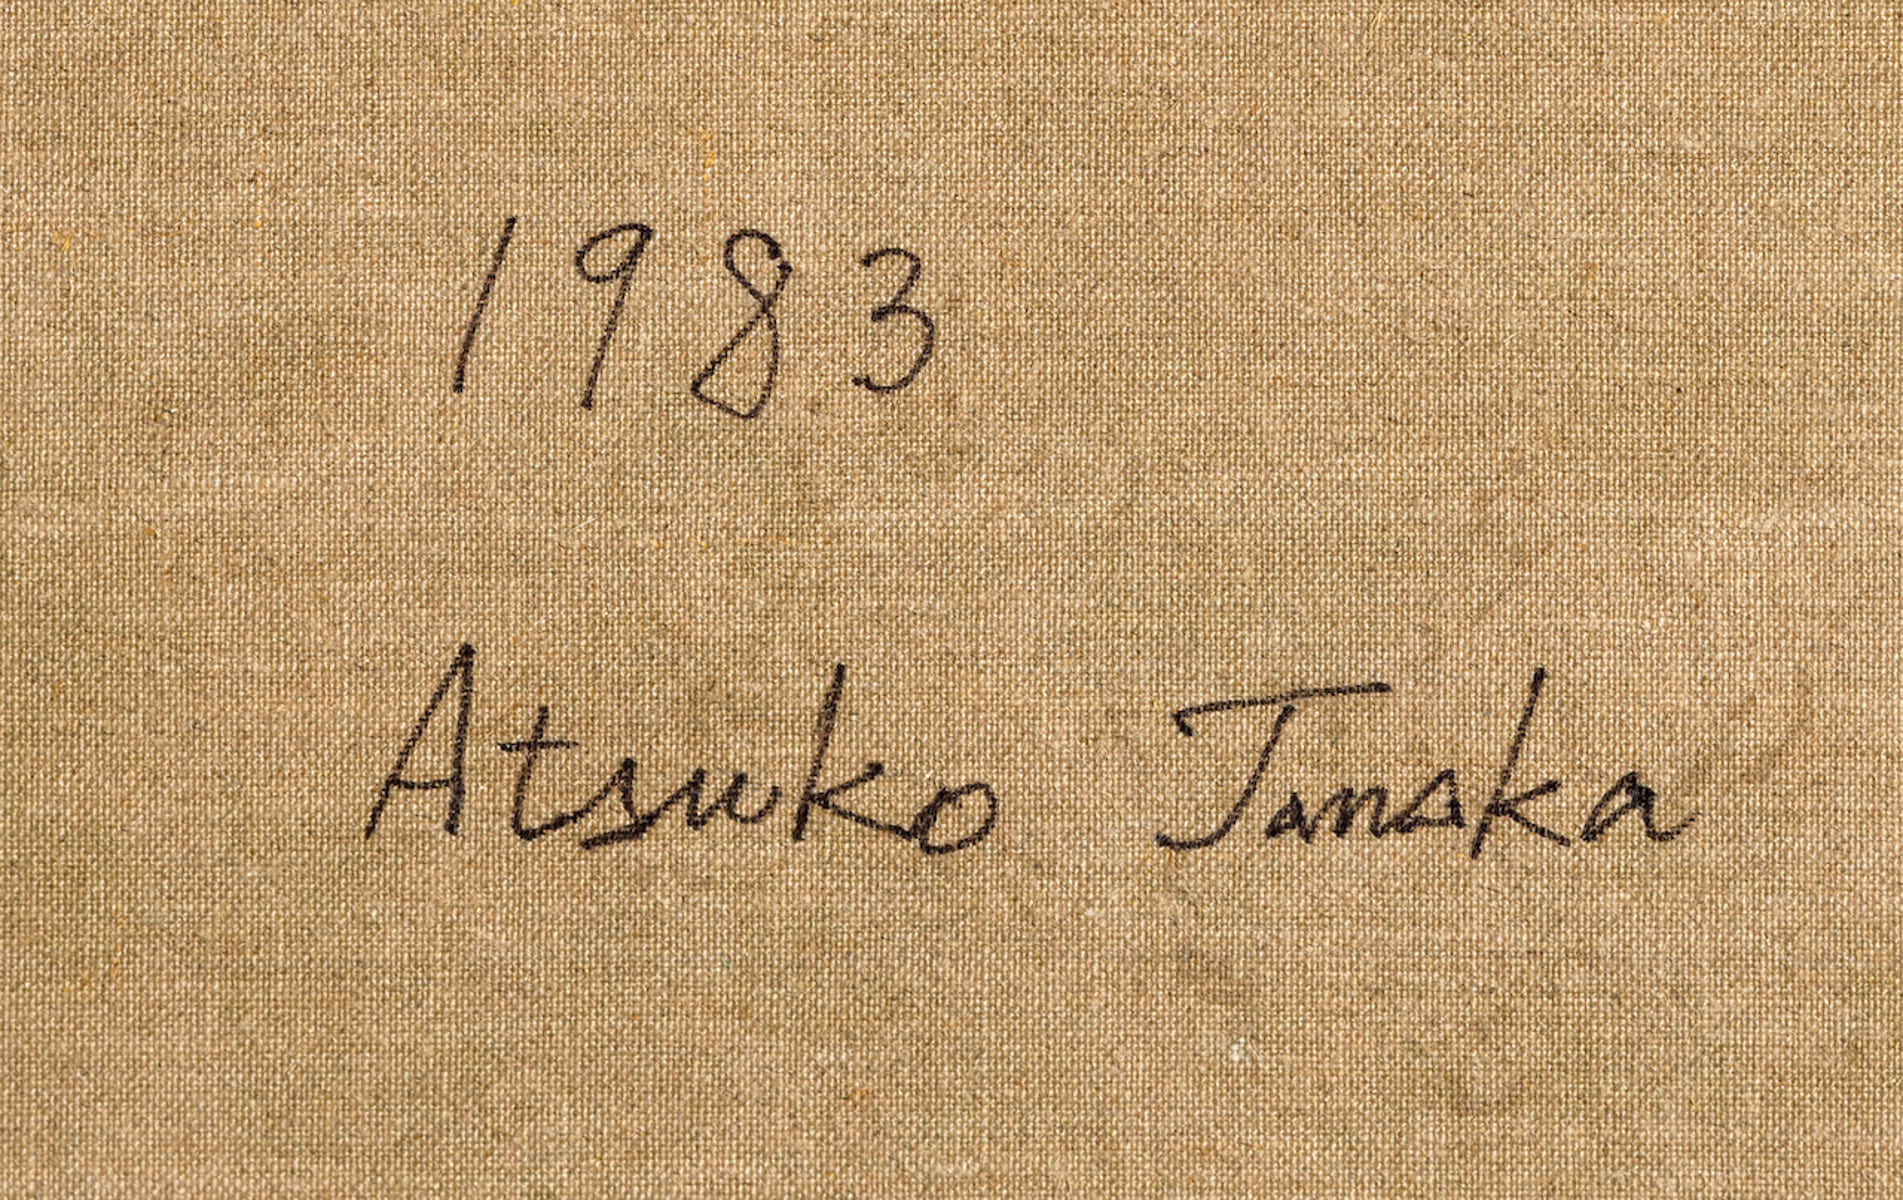 1983
Atsuko Tanaka